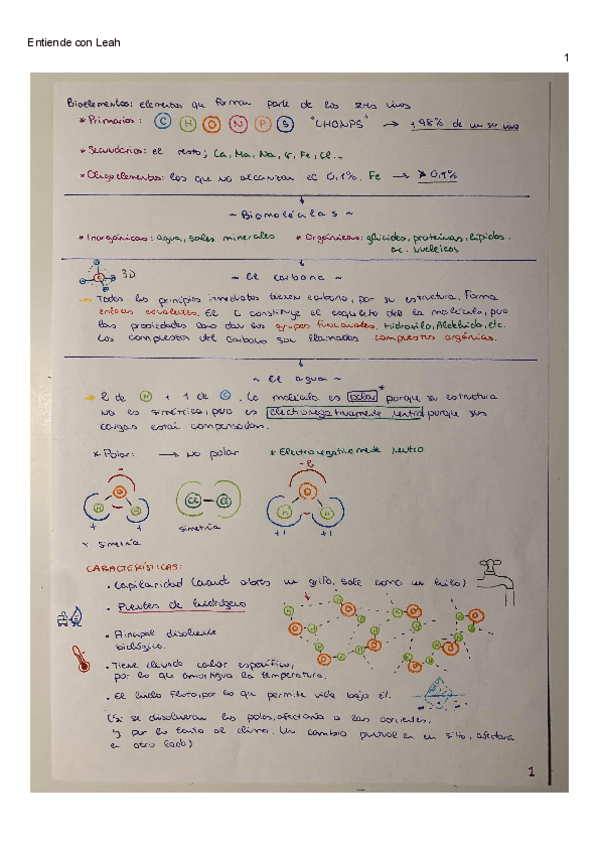 Entiende con Leah
1
Bioelementos: elementos que forman parte de los seres vivos
* Primarios: C H O N P S "CHONPS" → 98% de un ser vivo
* Secundarios: el resto; Ca, Mg, Na, K, Fe, Cl...
* Oligoelementos: los que no alcanzan el 0,1%. Fe → 0,1%
~ Biomoléculas ~
* Inorgánicas: agua, sales minerales * Orgánicas: glúcidos, proteínas, lípidos.
ac. nucleicos
3D
~ El carbono ~
Todos los principios inmediatos tienen carbono, por su estructura. Forma
enlaces covalentes. El C constituye el esqueleto de la molécula, pero
las propiedades las dan los grupos funcionales. Hidroxilo, Aldehído, etc.
Los compuestos del carbono son llamados compuestos orgánicos.
~ El agua ~
2 de H + 1 de O. La molécula es polar* porque su estructura
no es simétrica, pero es electronegativamente neutra porque sus
cargas están compensadas.
* Polar: → no polar * Electronegativamente neutro
- -2
O O
H H Cl Cl H H
+ + simetría +1 +1
x simetría
CARACTERÍSTICAS:
• Capilaridad (cuando abres un grifo, sale como un hilo)
• Puentes de hidrógeno
• Principal disolvente
biológico.
• Tiene elevado calor específico,
por lo que amortigua la temperatura.
• El hielo flota, por lo que permite vida bajo él.
(Si se disolvieran los polos, afectaría a las corrientes,
y por lo tanto al clima. Un cambio puntual en un sitio, afectará
en otro lado)
1